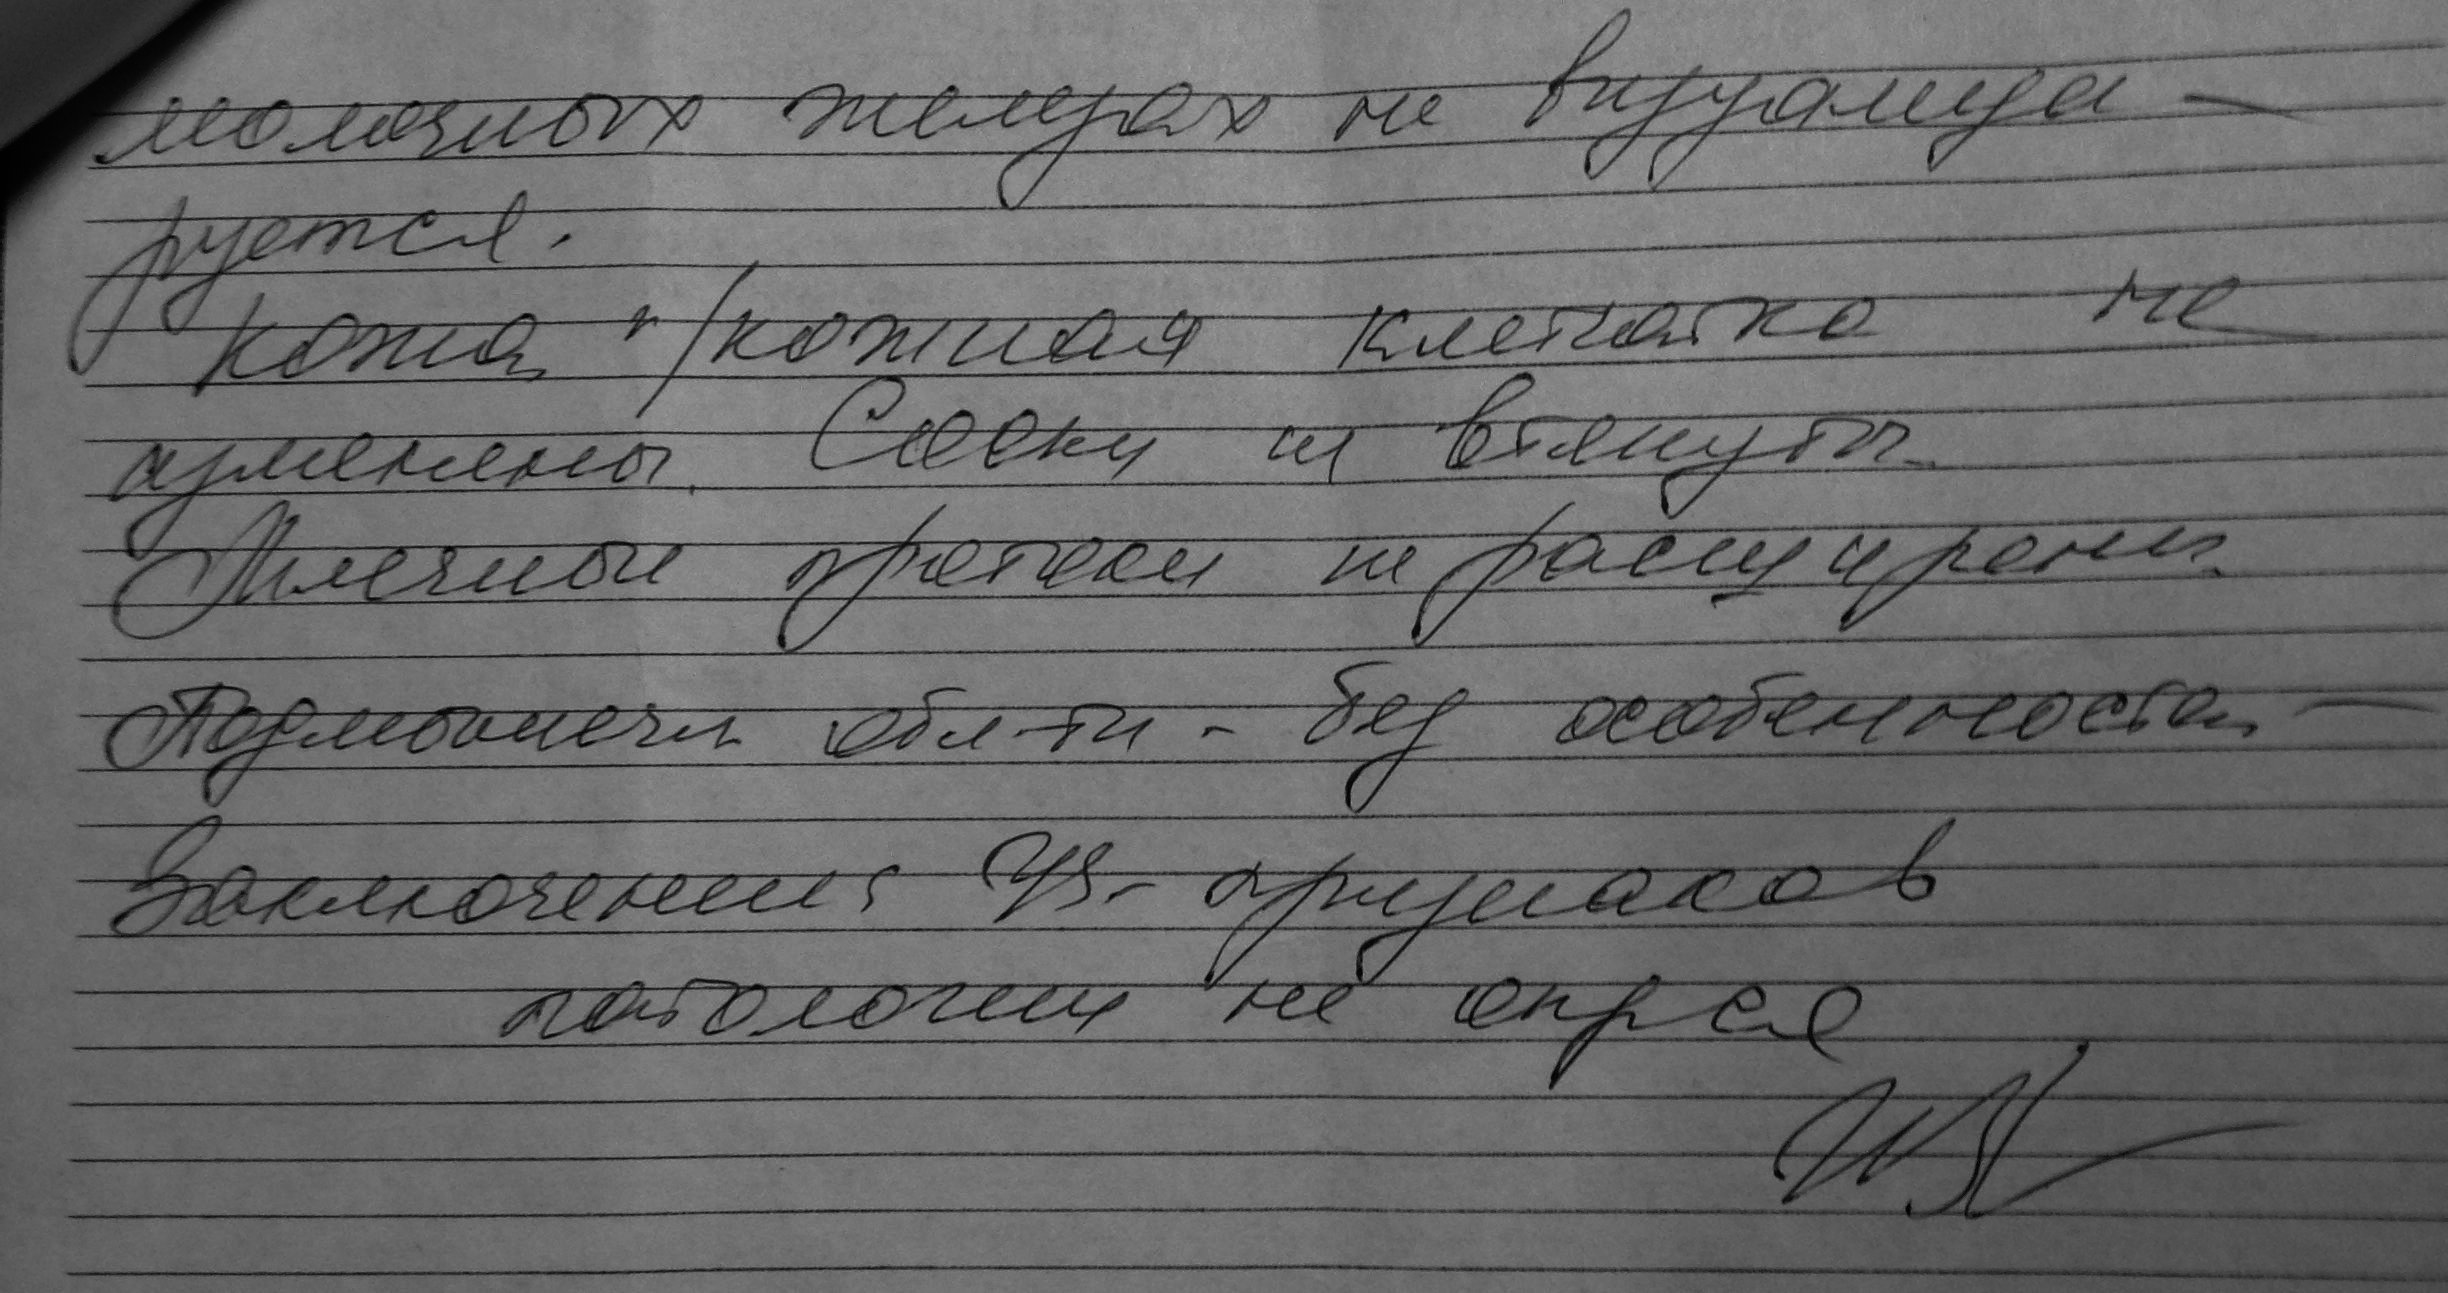 молочных железах не визуализи-
руется.
Кожа, п/кожная клетчатка не
изменены. Соски не втянуты.
Млечные протоки не расширены.
Подмышечн обл-ти - без особенностей
Заключение: УЗ- признаков
патологии не